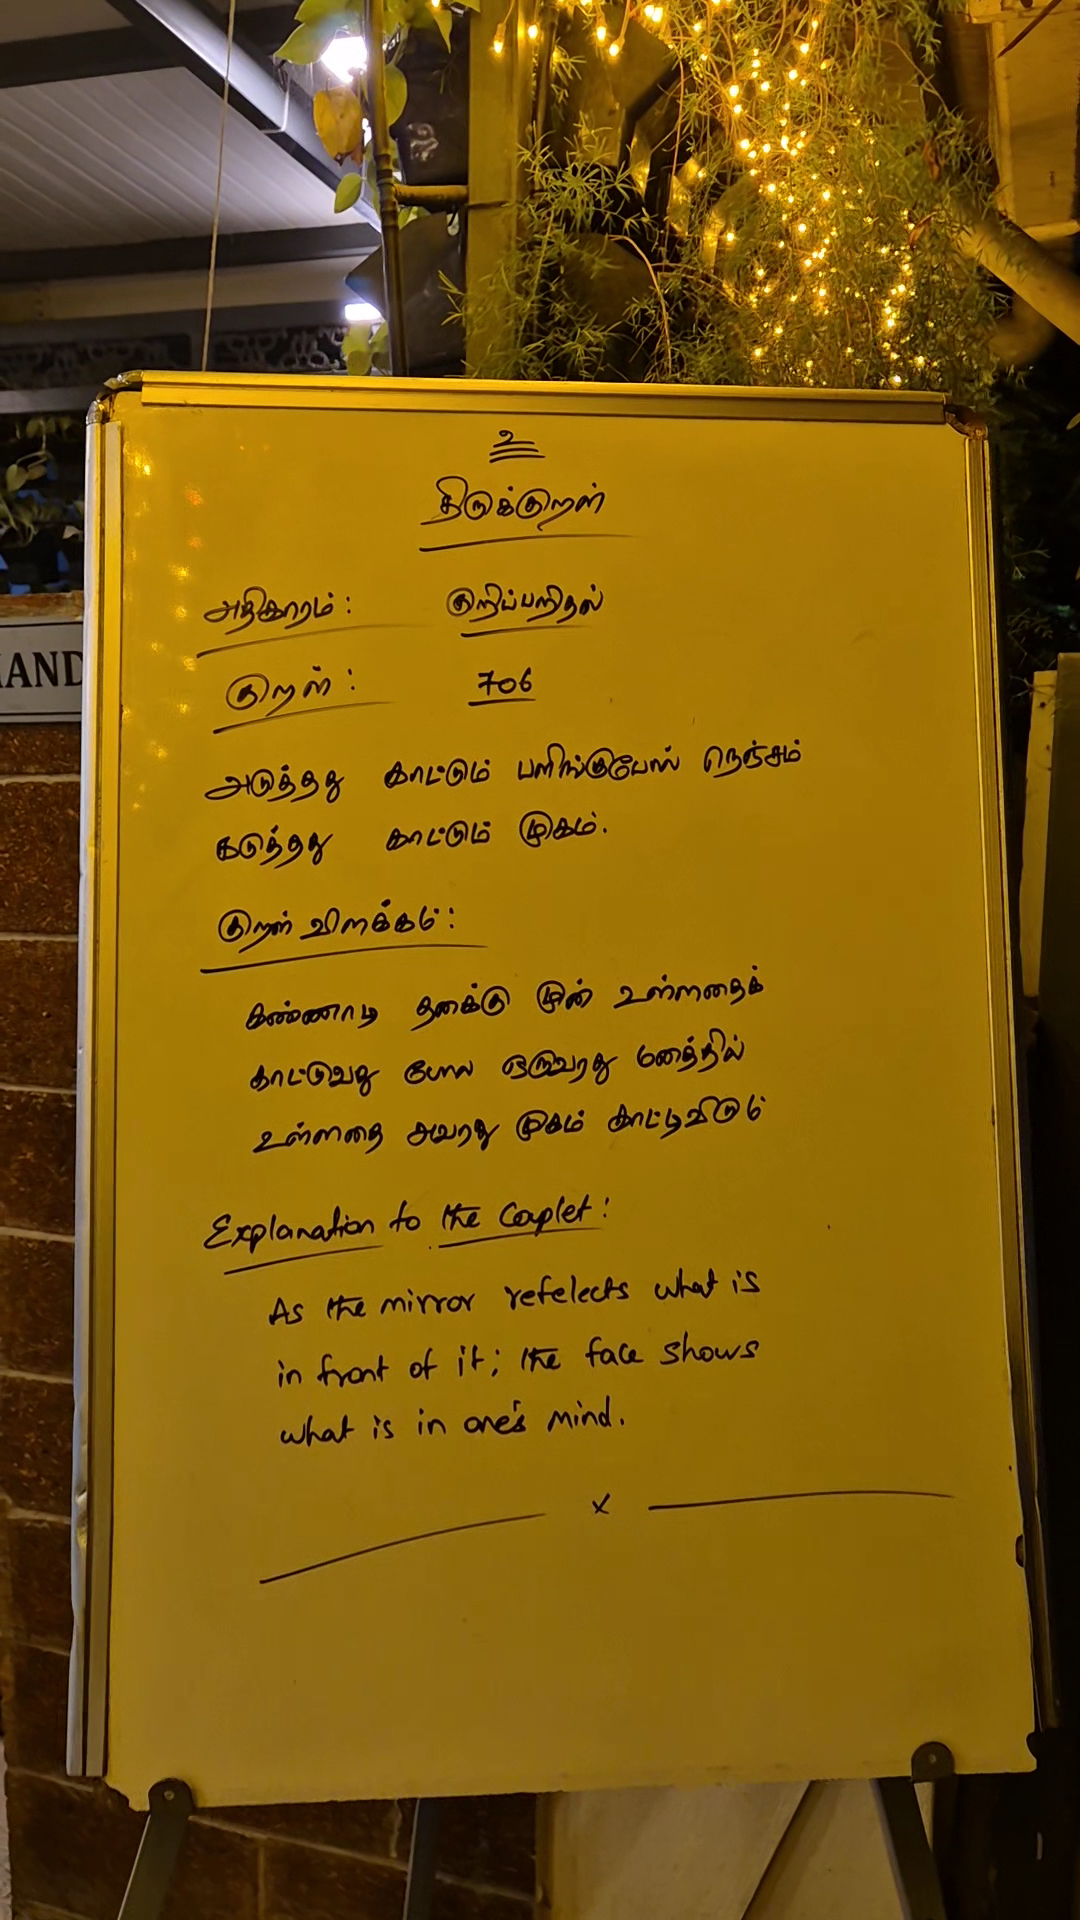 உ
திருக்குறள்
அதிகாரம் : குறிப்பறிதல்
குறள் : 706
அடுத்தது காட்டும் பளிங்குபோல் நெஞ்சம்
கடுத்தது காட்டும் முகம்.
குறள் விளக்கம் :
கண்ணாடி தனக்கு முன் உள்ளதைக்
காட்டுவது போல ஒருவரது மனத்தில்
உள்ளதை அவரது முகம் காட்டிவிடும்
Explanation to the Couplet :
As the mirror refelects what is
in front of it; the face shows
what is in one's mind.
x